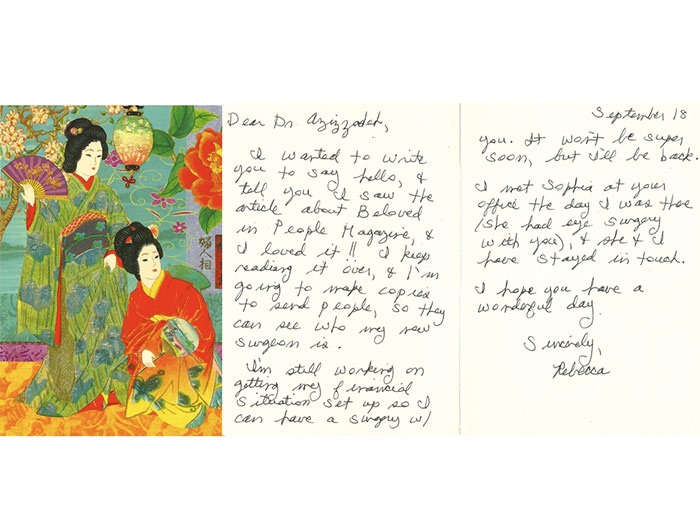 婦人相
Dear Dr. Azizzadeh,
I wanted to write
you to say hello, &
tell you I saw the
article about Beloved
in People Magazine, &
I loved it!! I keep
reading it over, & I'm
going to make copies
to send people, so they
can see who my new
surgeon is.
I'm still working on
getting my financial
situation set up so I
can have a surgery w/
September 18
you. It won't be super
soon, but I'll be back.
I met Sophia at your
office the day I was there
(she had eye surgery
with you), & she & I
have stayed in touch.
I hope you have a
wonderful day.
Sincerely,
Rebecca